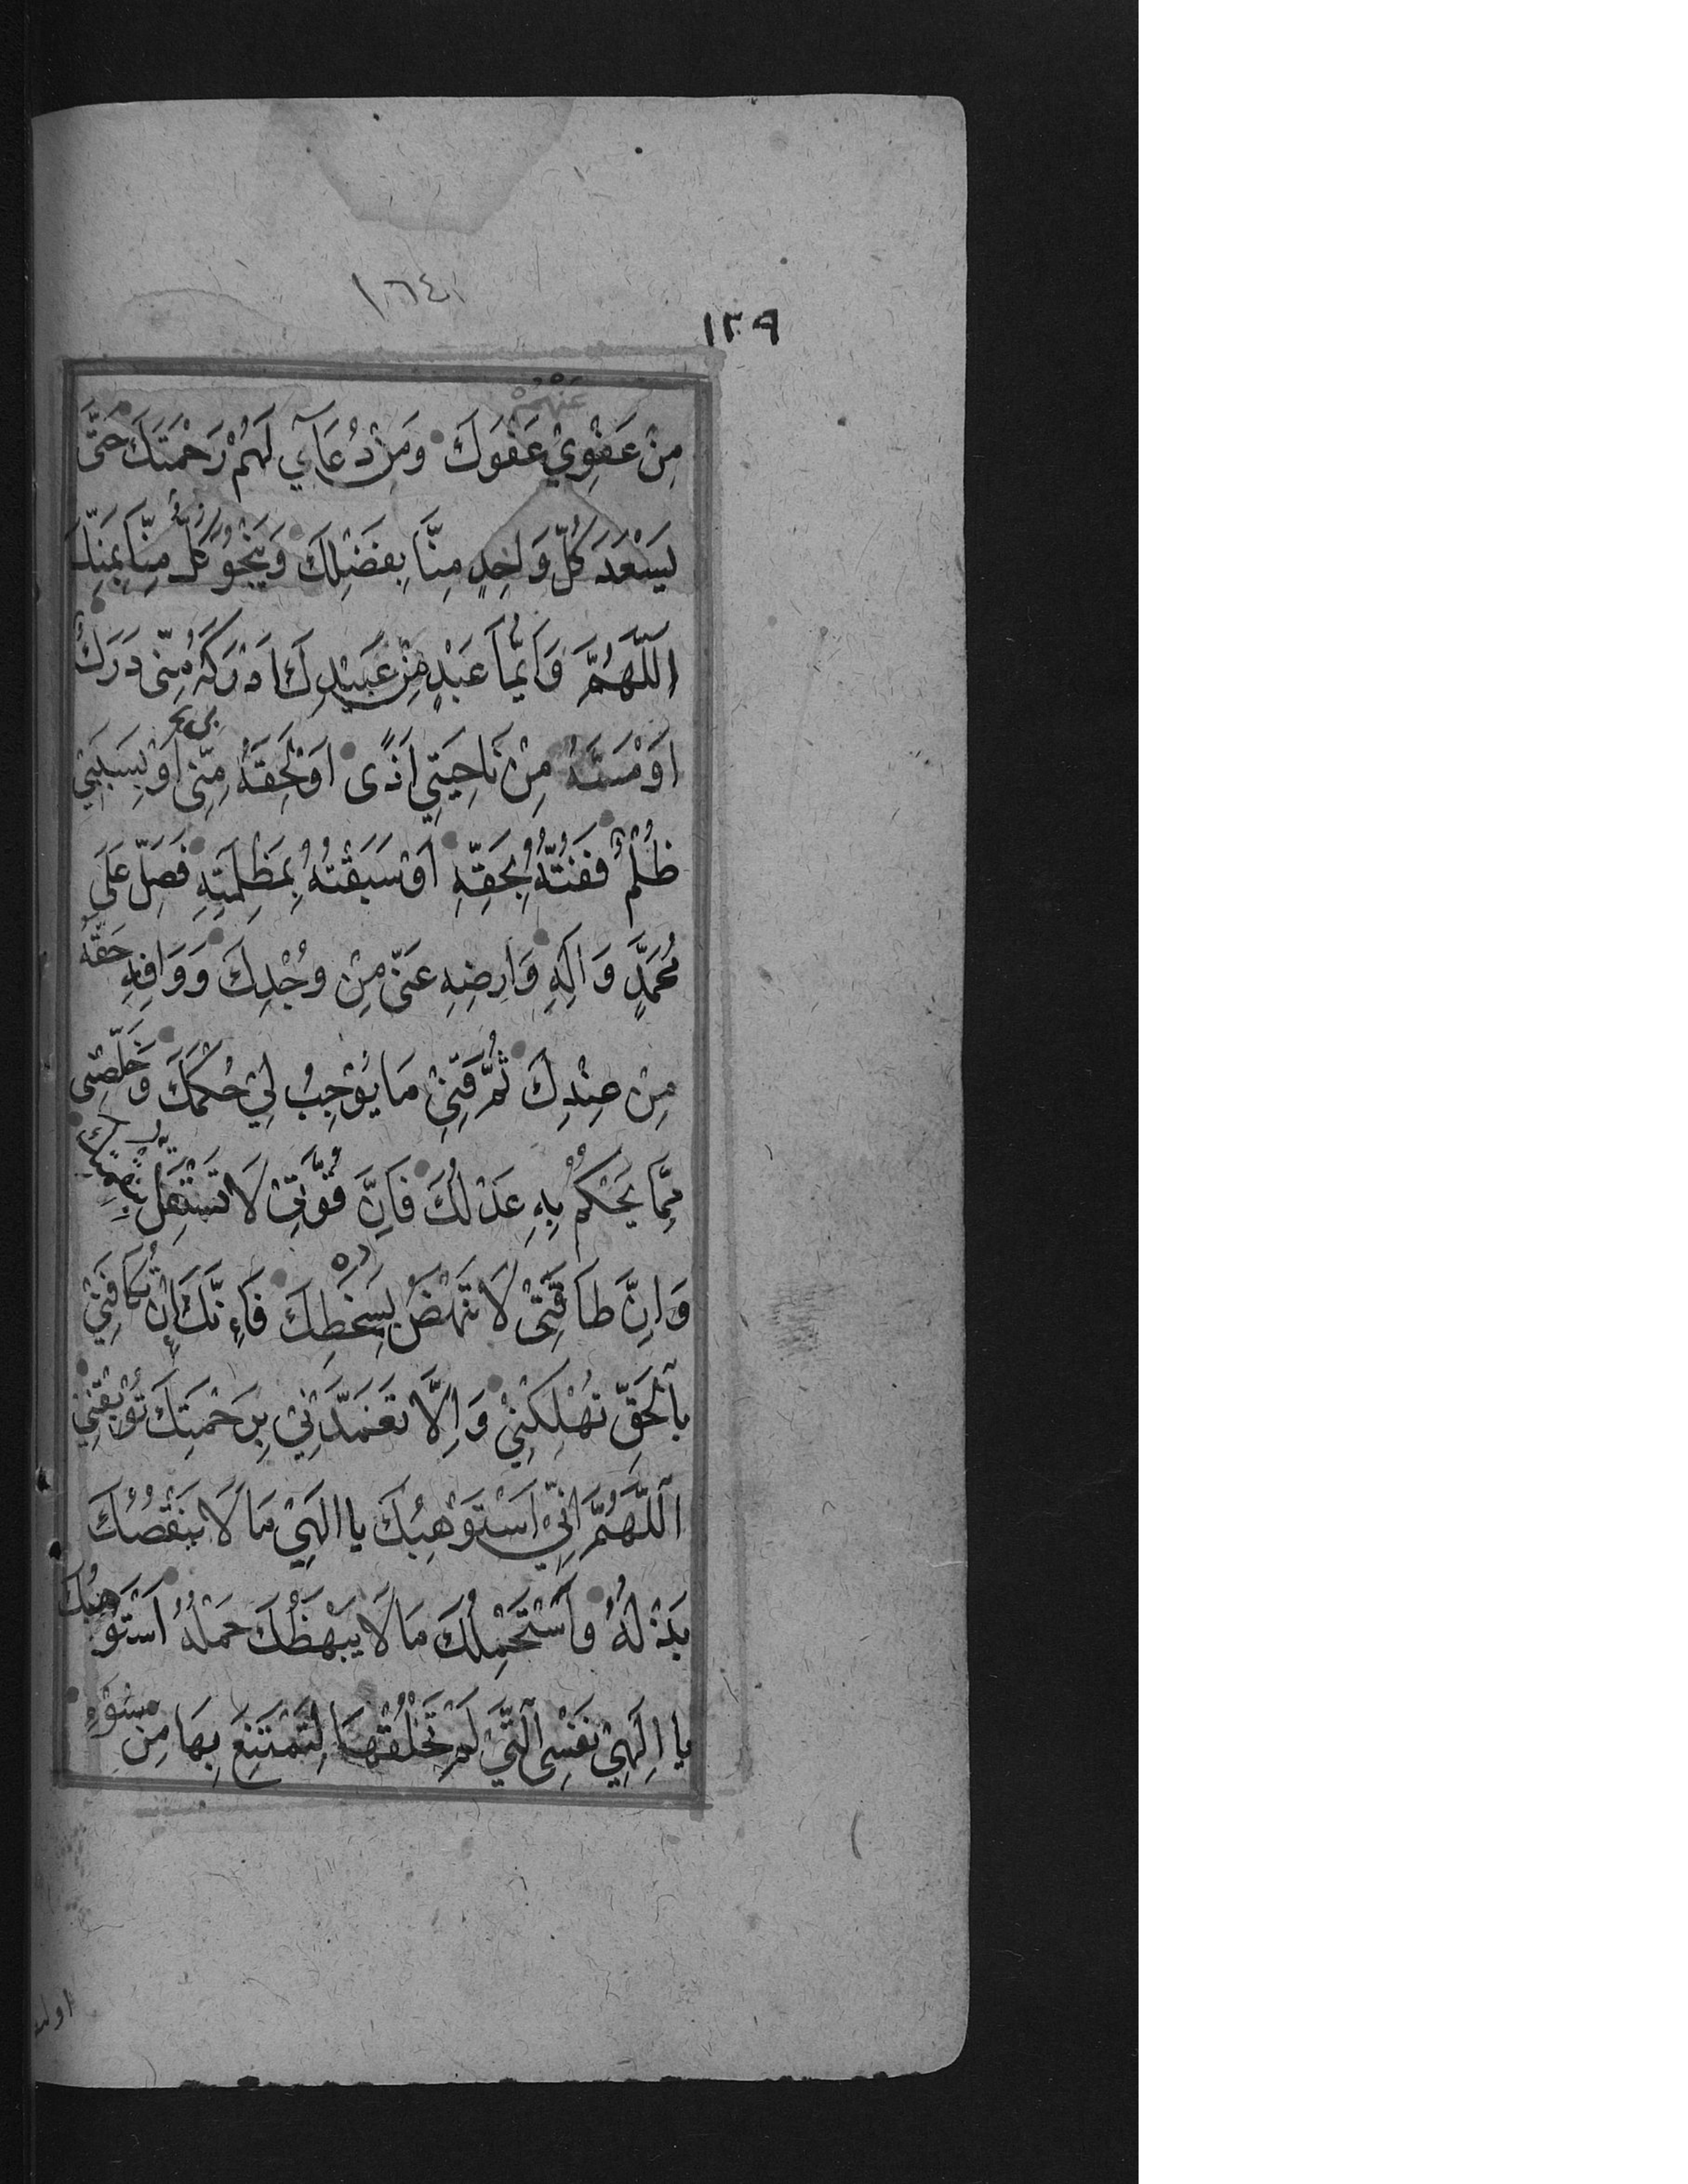 ١٦٤
١٣٩
عَنْهُمْ
مِنْ عَفْوِيْ عَفْوَكَ وَمِنْ دُعَآئِي لَهُمْ رَحْمَتَكَ حَتَّى
يَسْعَدَ كُلُّ وَاحِدٍ مِنَّا بِفَضْلِكَ وَيَنْجُوَ كُلٌّ مِنَّا بِمَنِّكَ
اَللّٰهُمَّ وَاَيُّمَا عَبْدٍ مِنْ عَبِيْدِكَ اَدْرَكَهُ مِنِّى دَرَكٌ
اَوْ مَسَّهُ مِنْ نَاحِيَتِي اَذًى اَوْ لَحِقَهُ مِنِّى اَوْ بِسَبَبِي
ظُلْمٌ فَفُتُّهُ بِحَقِّهِ اَوْ سَبَقْتُهُ بِمَظْلِمَتِهِ فَصَلِّ عَلَى
مُحَمَّدٍ وَاٰلِهِ وَارْضِهِ عَنِّى مِنْ وُجْدِكَ وَوَافِهِ حَقَّهُ
مِنْ عِنْدِكَ ثُمَّ قِنِيْ مَا يُوْجِبُ لِيْ حُكْمَكَ وَخَلِّصْنِى
مِمَّا يَحْكُمُ بِهِ عَدْلُكَ فَاِنَّ قُوَّتِيْ لَا تَسْتَقِلُّ بِنِقْمَتِكَ
وَاِنَّ طَاقَتِىْ لَا تَنْهَضُ بِسَخَطِكَ فَاِنَّكَ اِنْ تُكَافِنِيْ
بِالْحَقِّ تُهْلِكْنِيْ وَاِلَّا تَغَمَّدْنِيْ بِرَحْمَتِكَ تُوْبِقْنِيْ
اَللّٰهُمَّ اِنِّيْ اَسْتَوْهِبُكَ يا اِلٰهِيْ مَا لَا يَنْقُصُكَ
بَذْلُهُ وَاَسْتَحْمِلُكَ مَا لَا يَبْهَظُكَ حَمْلُهُ اَسْتَوْهِبُكَ
يا اِلٰهِيْ نَفْسِى اَلَّتِيْ لَمْ تَخْلُقْهَا لِتَمْتَنِعَ بِهَا مِنْ سُوْءٍ